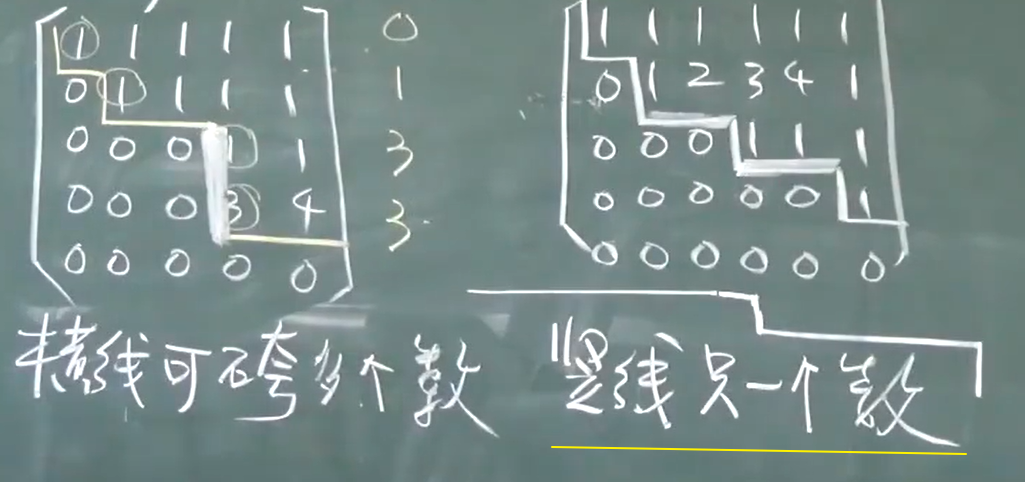 1 1 1 1 1 0
0 1 1 1 1 1
0 0 0 1 1 3
0 0 0 3 4 3
0 0 0 0 0
1 1 1 1 1 1
0 1 2 3 4 1
0 0 0 1 1 1
0 0 0 0 0 1
0 0 0 0 0 0
横线可跨多个数
竖线只一个数